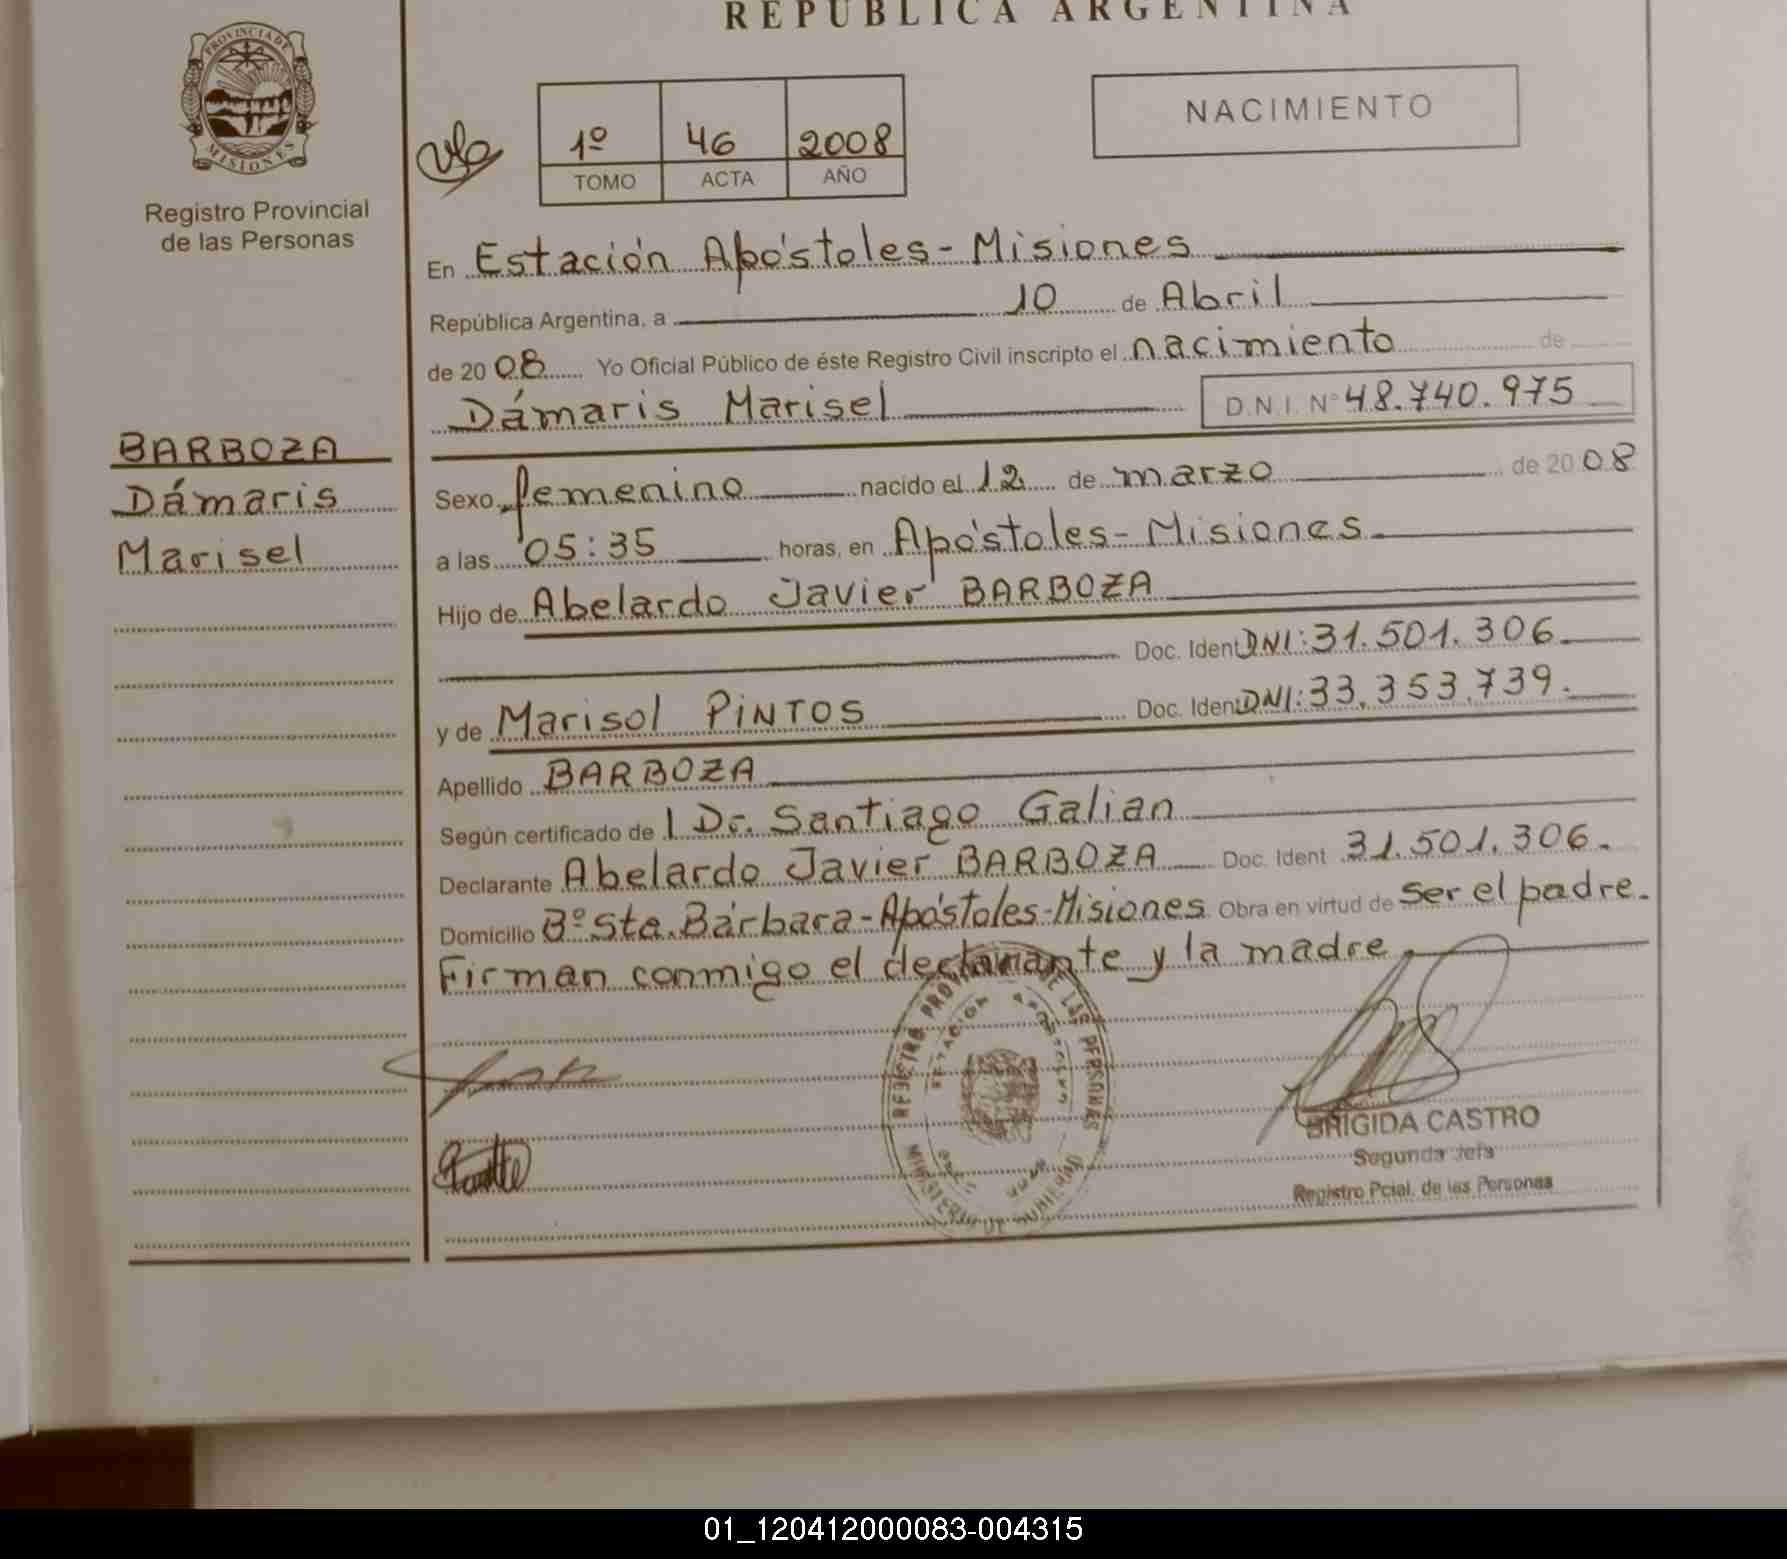 REPÚBLICA ARGENTINA
PROVINCIA DE
MISIONES
Registro Provincial
de las Personas
1º 46 2008
TOMO ACTA AÑO
NACIMIENTO
En Estación Apóstoles - Misiones
República Argentina, a 10 de Abril
de 2008 Yo Oficial Público de éste Registro Civil inscripto el nacimiento de
Dámaris Marisel D.N.I. Nº 48.740.975
BARBOZA
Dámaris
Marisel
Sexo femenino nacido el 12 de marzo de 2008
a las 05:35 horas, en Apóstoles - Misiones
Hijo de Abelardo Javier BARBOZA
Doc. Ident DNI: 31.501.306.
y de Marisol PINTOS Doc. Ident DNI: 33.353.739.
Apellido BARBOZA
Según certificado de l Dr. Santiago Galian
Declarante Abelardo Javier BARBOZA Doc. Ident 31.501.306.
Domicilio Bº Sta. Bárbara - Apóstoles - Misiones Obra en virtud de ser el padre.
Firman conmigo el declarante y la madre.
REGISTRO PROVINCIAL DE LAS PERSONAS
ESTACION APOSTOLES
MINISTERIO DE
BRIGIDA CASTRO
Segunda Jefa
Registro Pcial. de las Personas
01_120412000083-004315